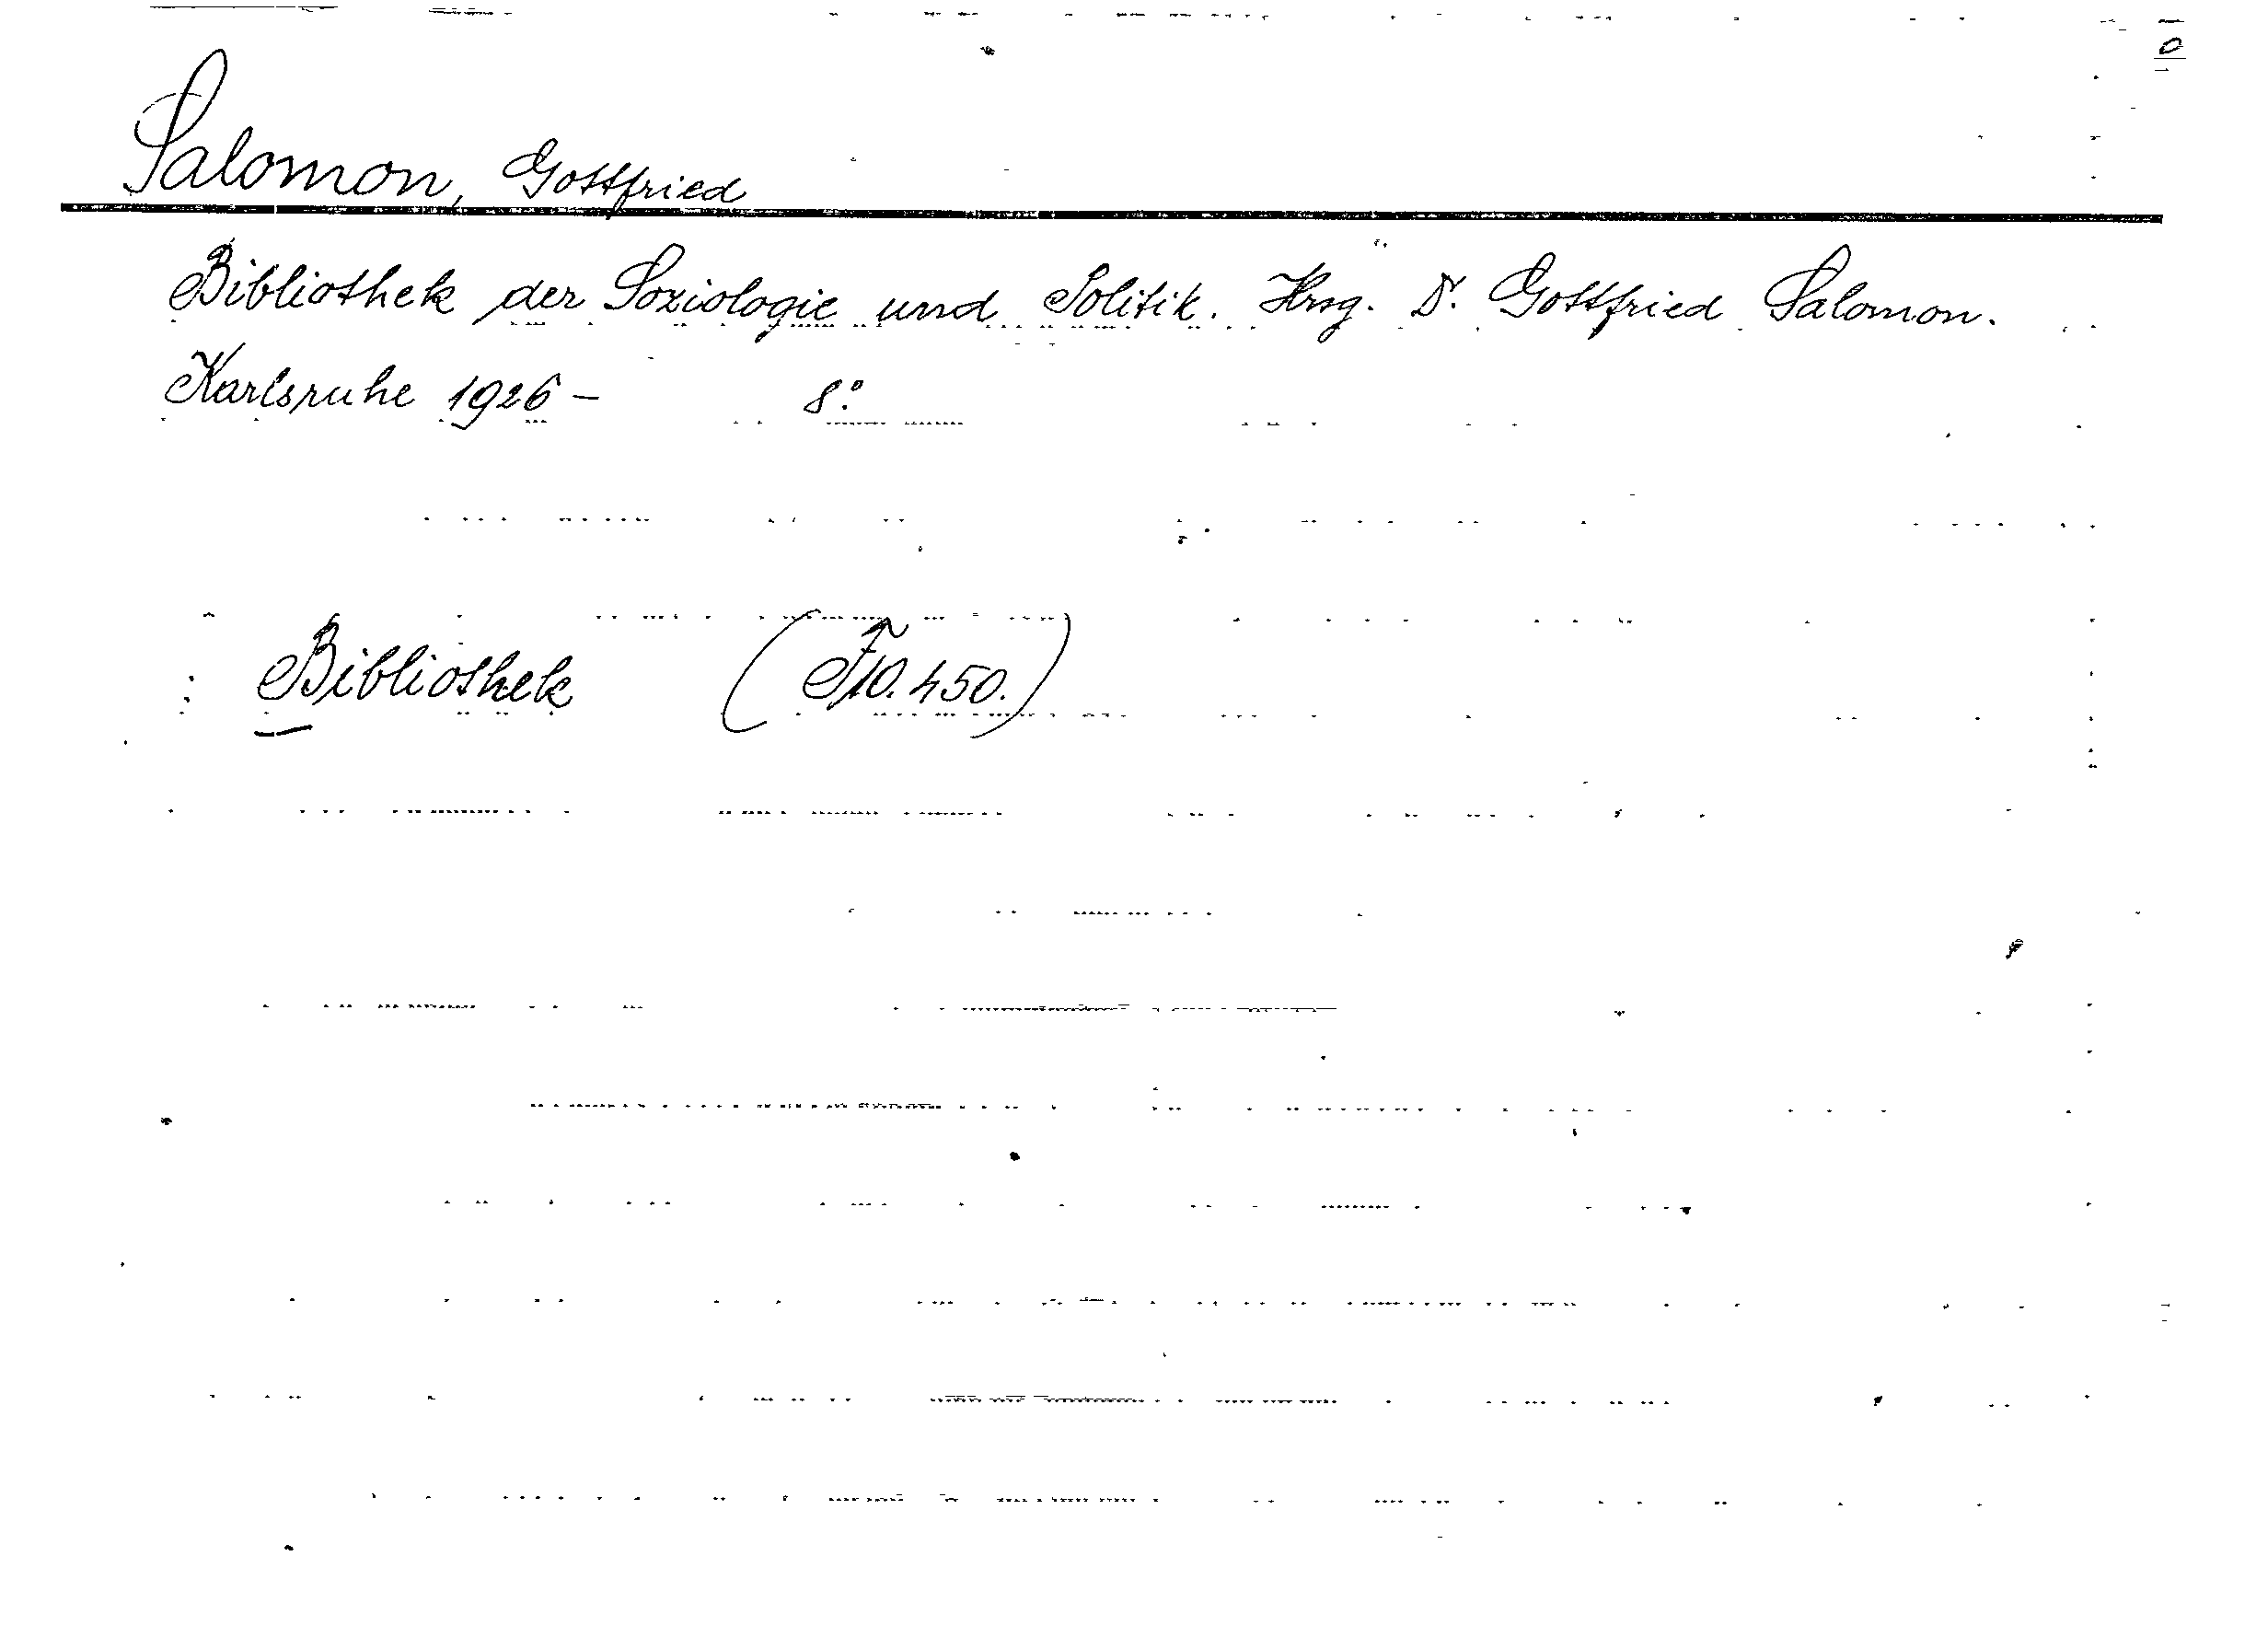 Salomon, Gottfried
Bibliothek der Soziologie und Politik. Hrsg. Dr. Gottfried Salomon.
Karlsruhe 1926 – 8°.
Bibliothek (F10.450.)